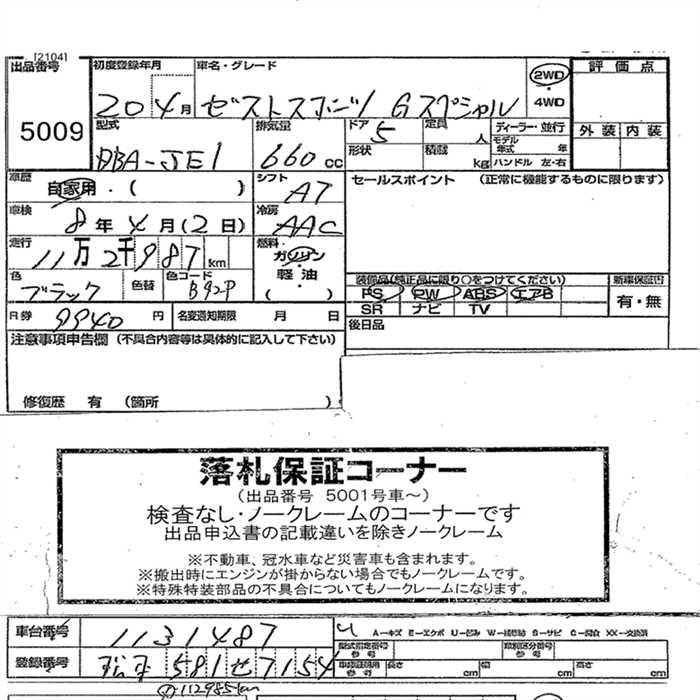 [2104]
出品番号 初度登録年月 車名・グレード 2WD 評価点
5009 20 4月 ゼストスポーツ Gスペシャル ・4WD
型式 排気量 ドア 定員 ディーラー・並行 外装 内装
DBA-JE1 660cc 5 人 モデル年式 年
形状 積載 kg ハンドル 左・右
車歴 自家用・( ) シフト AT セールスポイント (正常に機能するものに限ります)
車検 8年4月(2日) 冷房 AAC
走行 11万2千987km 燃料 ガソリン・軽油・( )
色 ブラック 色替 色コード B92P 装備品(純正品に限り○をつけてください) 新車保証書
PS PW ABS エアB 有・無
R券 9940円 名変通知期限 月 日 SR ナビ TV
注意事項申告欄 (不具合内容等は具体的に記入して下さい) 後日品
修復歴 有 (箇所 )
落札保証コーナー
(出品番号 5001号車~)
検査なし・ノークレームのコーナーです
出品申込書の記載違いを除きノークレーム
※不動車、冠水車など災害車も含まれます。
※搬出時にエンジンが掛からない場合でもノークレームです。
※特殊特装部品の不具合についてもノークレームになります。
車台番号 1131487 A-キズ E-エクボ U-凹み W-補修跡 S-サビ C-腐食 XX-交換済
型式指定番号 参考 類別区分番号 参考
登録番号 581せ7154 車検証期限 参考 長さ cm 幅 cm 高さ cm
112985km